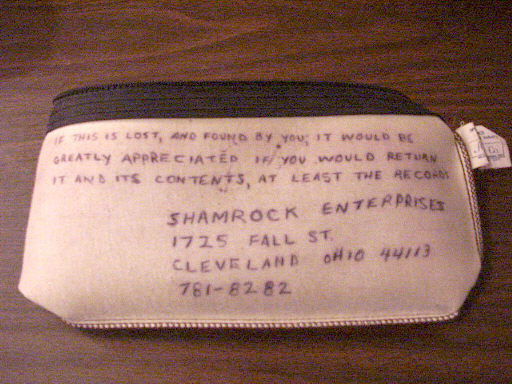 IF THIS IS LOST, AND FOUND BY YOU, IT WOULD BE
GREATLY APPRECIATED IF YOU WOULD RETURN
IT AND ITS CONTENTS, AT LEAST THE RECORDS
SHAMROCK ENTERPRISES
1725 FALL ST.
CLEVELAND OHIO 44113
781-8282